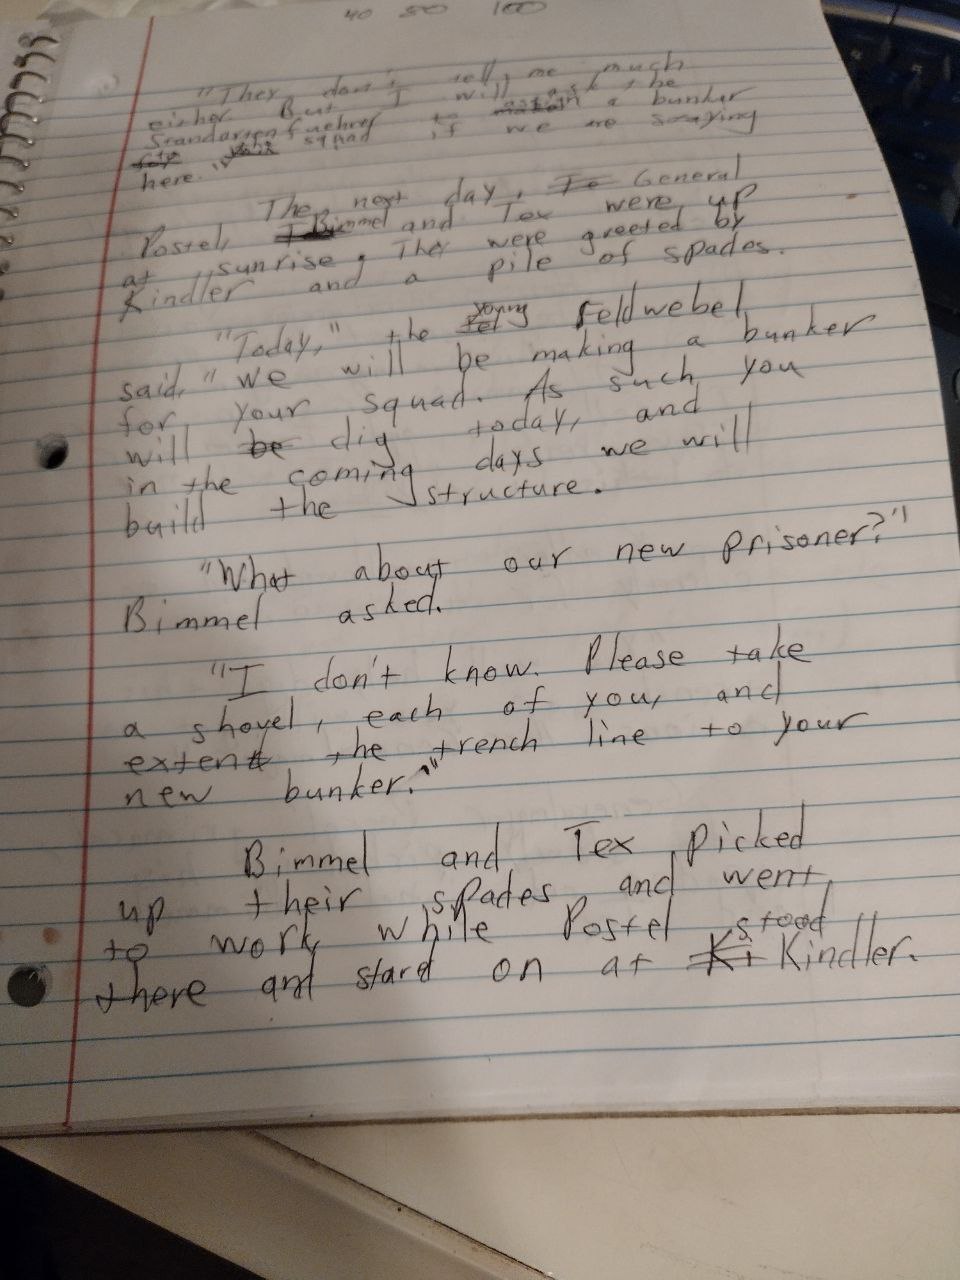 40 80 100
"They don't tell me much
either. But I will ask the
Standartenfuehrer to a bunker
squad if we are staying
here."
The next day, General
Postel, Bimmel and Tex were up
at sunrise. They were greeted by
Kindler and a pile of spades.
"Today," the young Feldwebel
said, "we will be making a bunker
for your squad. As such you
will be dig today, and
in the coming days we will
build the structure.
"What about our new prisoner?"
Bimmel asked.
"I don't know. Please take
a shovel, each of you, and
extend the trench line to your
new bunker."
Bimmel and Tex picked
up their spades and went
to work, while Postel stood
there and stard on at Kt Kindler.